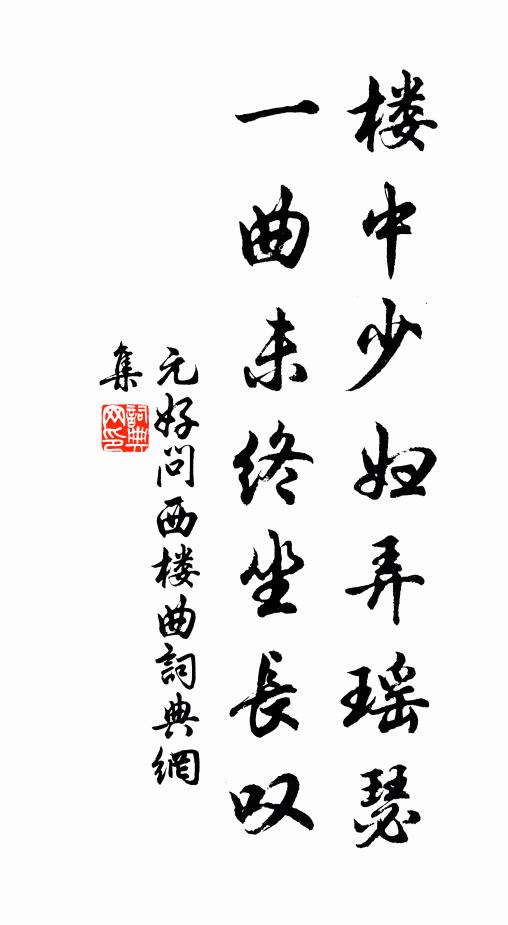 楼中少妇弄瑶瑟
一曲未终坐長叹
元好问西楼曲詞典網
集
詞典网印